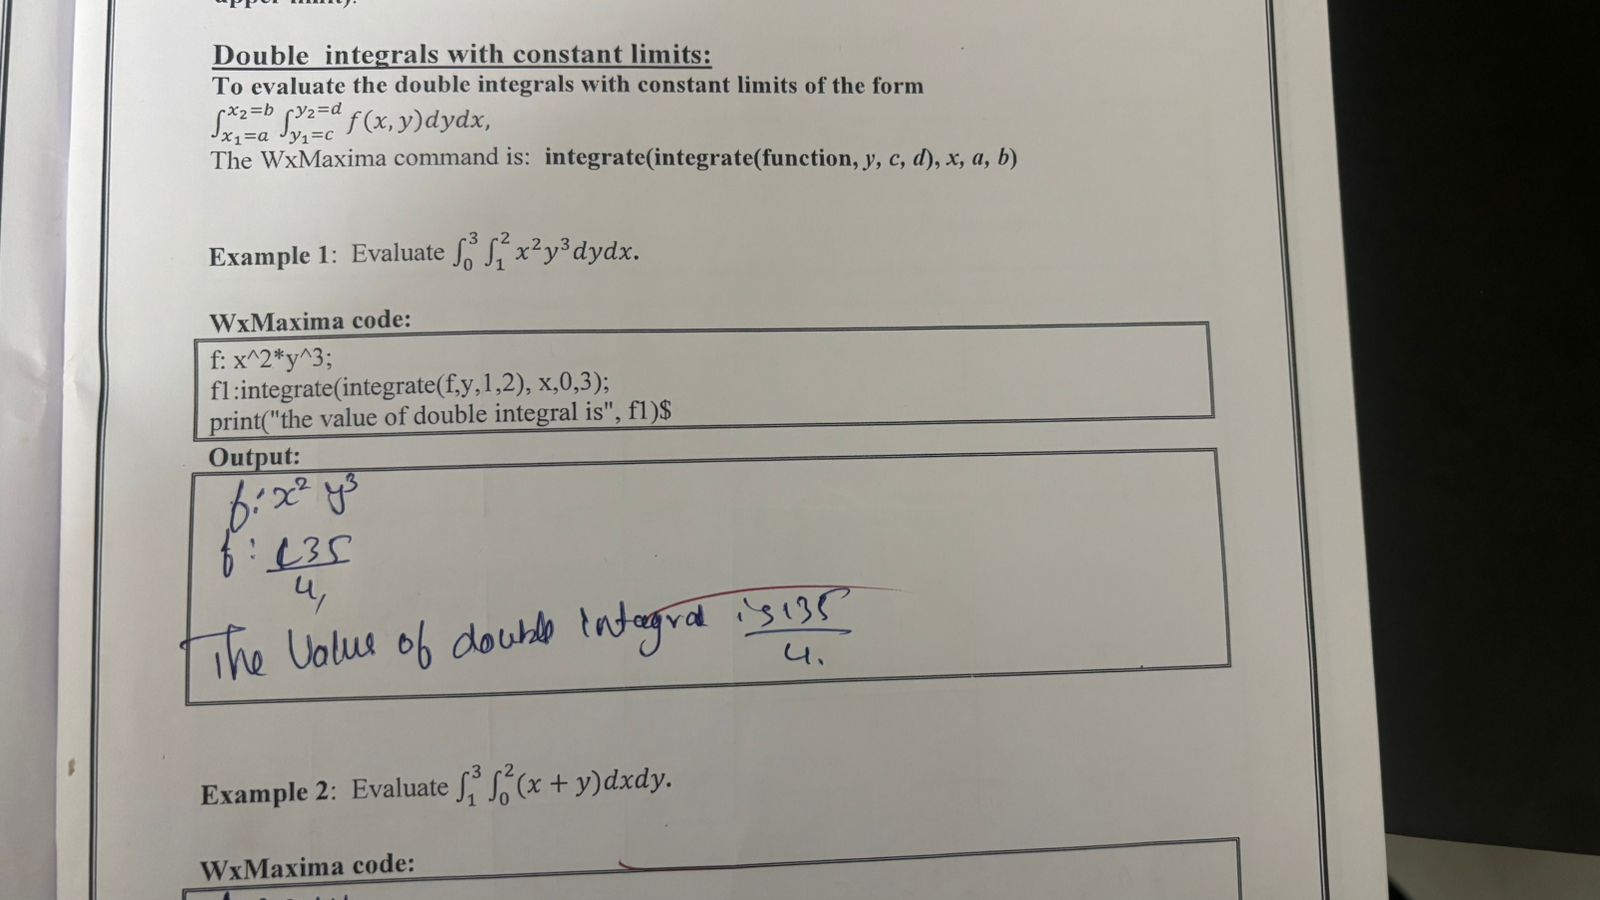 Double integrals with constant limits:
To evaluate the double integrals with constant limits of the form
∫_{x₁=a}^{x₂=b} ∫_{y₁=c}^{y₂=d} f(x, y)dydx,
The WxMaxima command is: integrate(integrate(function, y, c, d), x, a, b)
Example 1: Evaluate ∫_0^3 ∫_1^2 x²y³dydx.
WxMaxima code:
f: x^2*y^3;
f1:integrate(integrate(f,y,1,2), x,0,3);
print("the value of double integral is", f1)$
Output:
f: x² y³
f: 135
4,
The Value of double integral is 135
4.
Example 2: Evaluate ∫_1^3 ∫_0^2 (x + y)dxdy.
WxMaxima code: